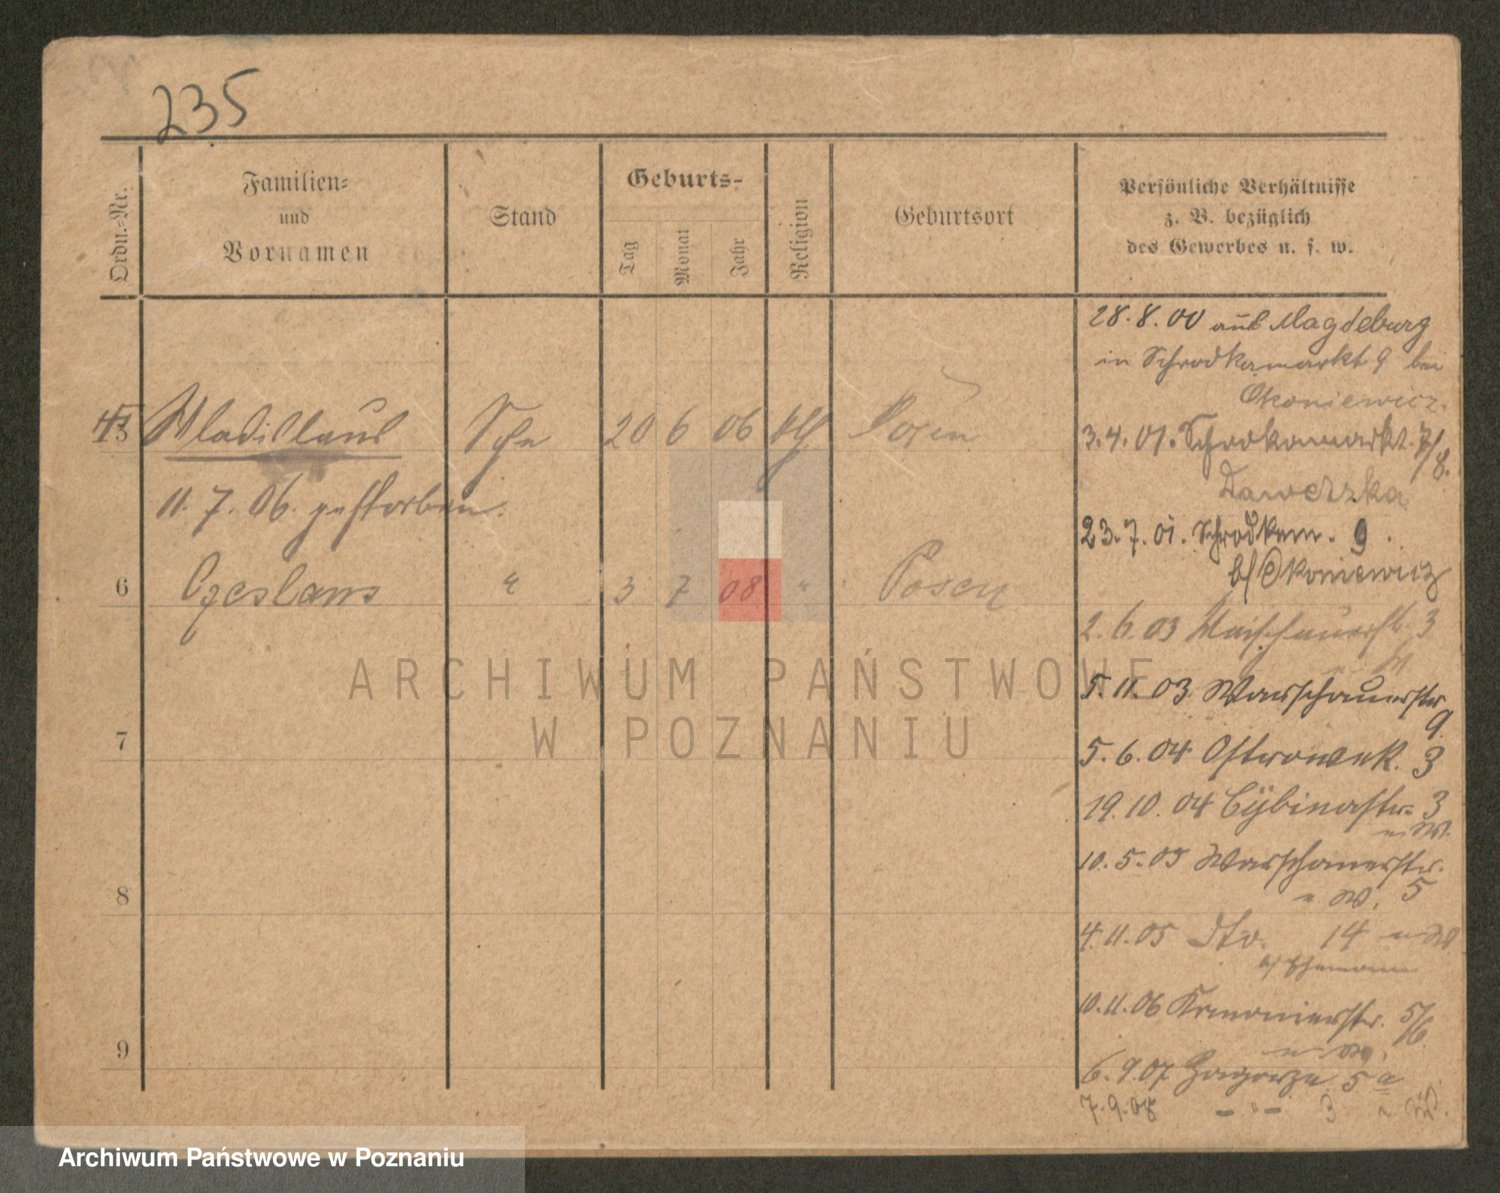 235
Ordn.-Nr.
Familien-
und
Vornamen
Stand
Geburts-
Tag
Monat
Jahr
Religion
Geburtsort
Persönliche Verhältnisse
z. B. bezüglich
des Gewerbes u. s. w.
28.8.00 aus Magdeburg
in Schrodkamarkt 9 bei
Okoniewicz.
5 Wladislaus 20 6 06 Posen
3.4.01. Schrodkamarkt. 7/8.
11.7.06. gestorben.
23.7.01. Schrodkam. 9.
b/ Okoniewicz
6 Czeslaus " 3 7 08 " Posen
2.6.03 Warschauerstr. 3
5.11.03 Warschauerstr.
9.
7
5.6.04 Ostrowek. 3
19.10.04 Cybinastr. 3
m. W.
8
10.5.05 Warschauerstr.
m. W. 5
4.11.05 Dto. 14
b/ Ehemann
9
10.11.06 5/6
6.9.07 Zagorze 5 a
7.9.08 - " - 3
ARCHIWUM PAŃSTWOWE
W POZNANIU
Archiwum Państwowe w Poznaniu